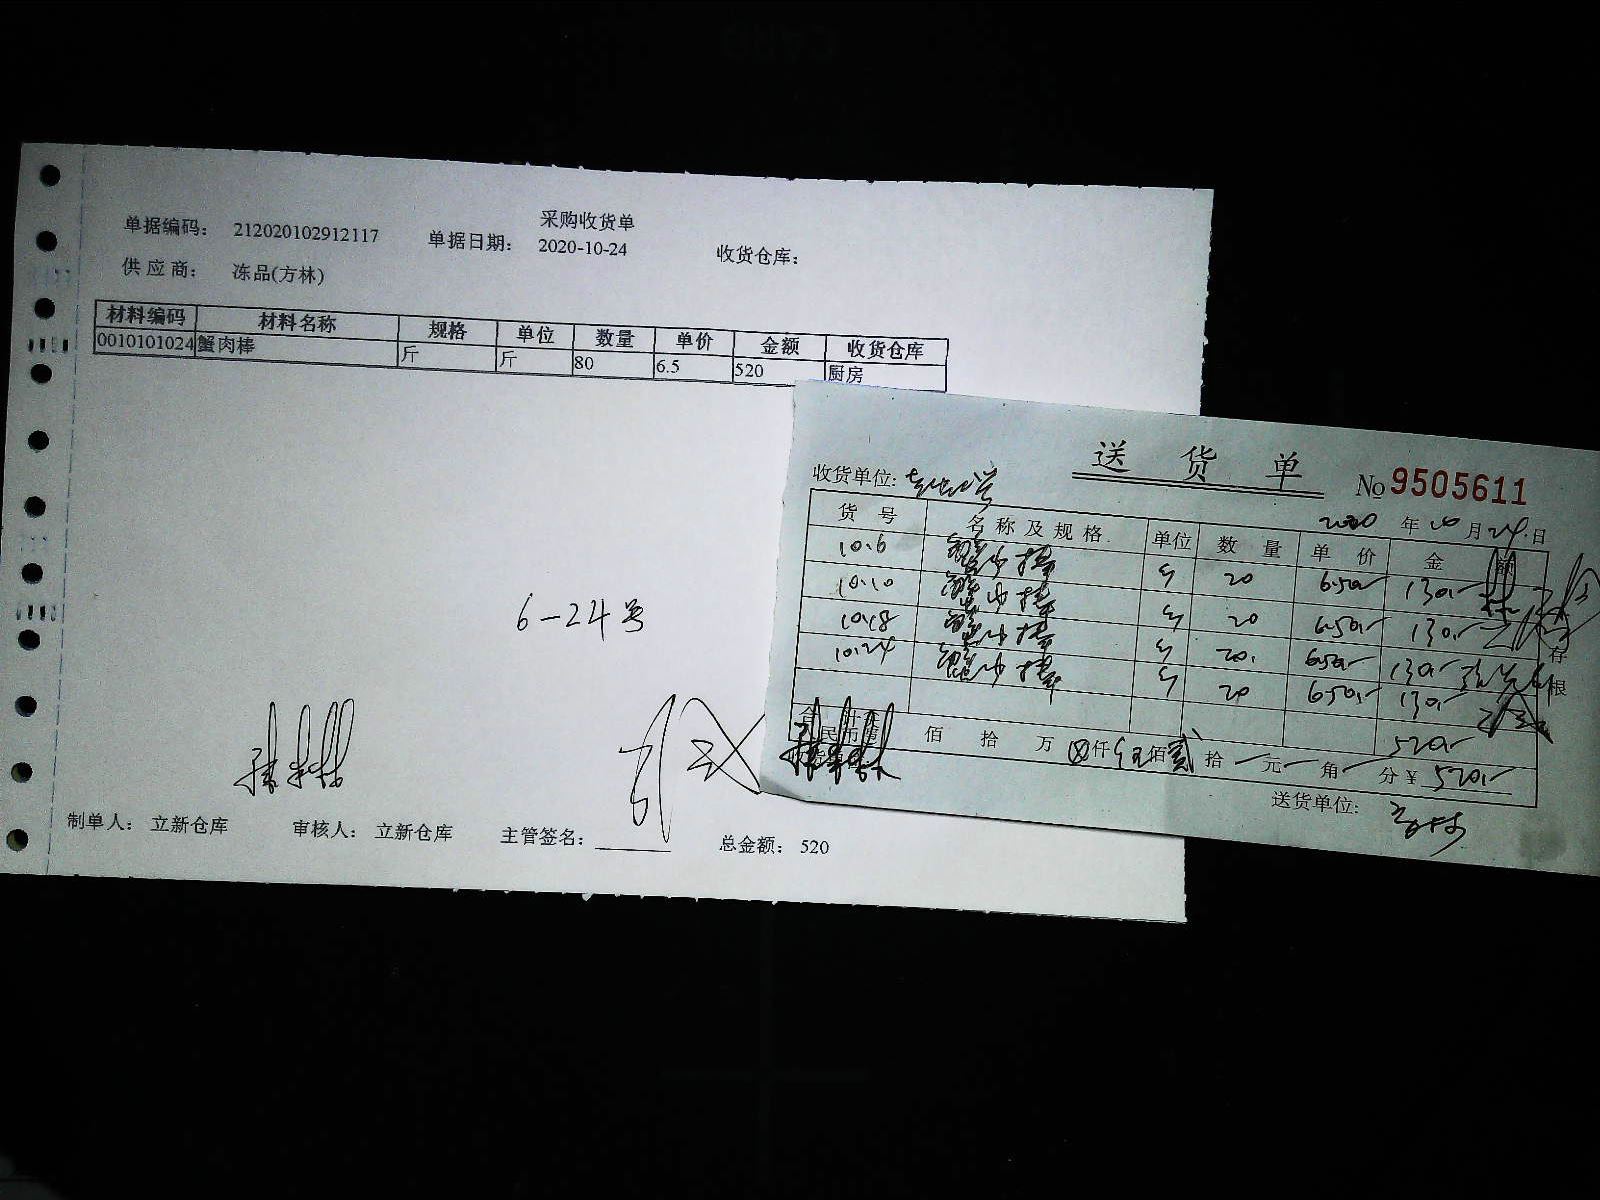 采购收货单
单据编码： 212020102912117 单据日期： 2020-10-24 收货仓库：
供应商： 冻品(方林)
材料编码 材料名称 规格 单位 数量 单价 金额 收货仓库
0010101024 蟹肉棒 斤 斤 80 6.5 520 厨房
6-24号
制单人： 立新仓库 审核人： 立新仓库 主管签名： 总金额： 520
送货单
收货单位:
No 9505611
2020年10月24日
货号 名称及规格 单位 数量 单价 金额
10.6 蟹肉棒 斤 20 6.50 130
10.10 蟹肉棒 斤 20 6.50 130
10.18 蟹肉棒 斤 20 6.50 130
10.24 蟹肉棒 斤 20 6.50 130
520
存根
佰 拾 万 ⊗仟伍佰贰拾 元 角 分 ¥ 520
送货单位: 方林